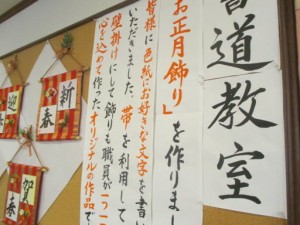 書道教室
「お正月飾り」を作りまし
皆様に色紙にお好きな文字を書い
いただきました。帯を利用して
壁掛けにして飾りも職員が一つ一つ
心を込めて作ったオリジナルの作品で
新春
迎春
賀春